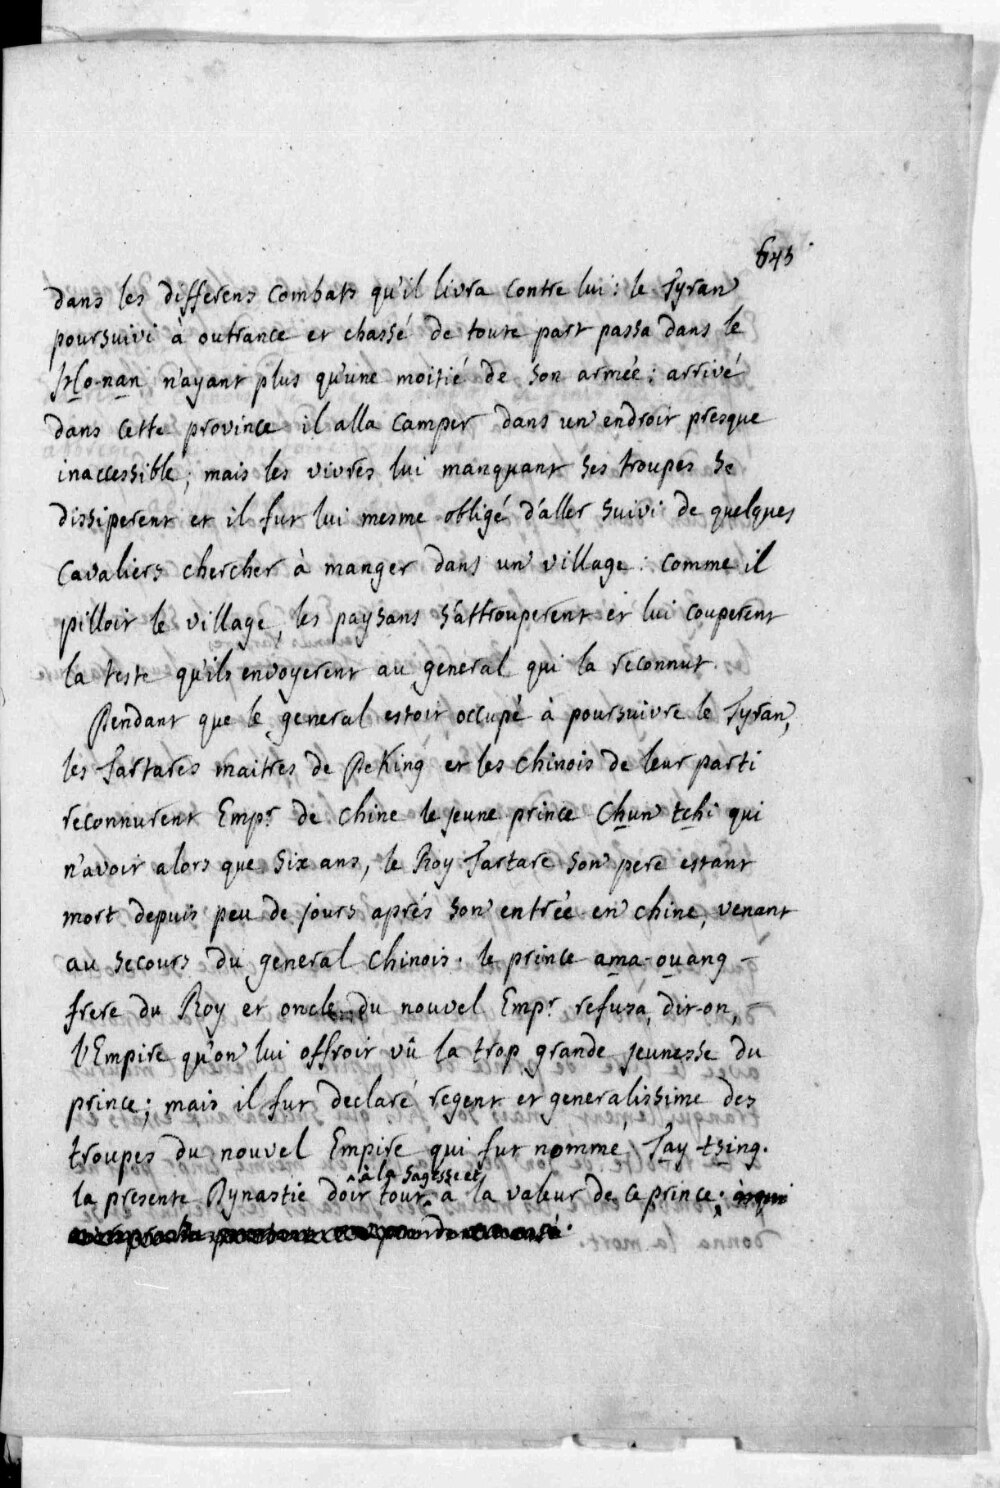 643
dans les differens combats qu'il livra contre lui: le Tyran
poursuivi à outrance et chassé de toute part passa dans le
Ho-nan n'ayant plus qu'une moitié de son armée; arrivé
dans cette province il alla camper dans un endroit presque
inaccessible; mais les vivres lui manquant ses troupes se
dissiperent et il fut lui mesme obligé d'aller suivi de quelques
cavaliers chercher à manger dans un village: comme il
pilloit le village, les paysans s'attrouperent et lui couperent
la teste qu'ils envoyerent au general qui la reconnut.
Pendant que le general estoit occupé à poursuivre le Tyran,
les Tartares maitres de Peking et les chinois de leur parti
reconnurent Empr. de chine le jeune prince Chun tchi qui
n'avoit alors que six ans, le Roy Tartare son pere estant
mort depuis peu de jours aprés son entrée en chine, venant
au secours du general chinois. le prince ama-ouang -
frere du Roy et oncle du nouvel Empr. refusa, dit-on, -
l'Empire qu'on lui offroit vû la trop grande jeunesse du
prince; mais il fut declaré regent et generalissime des
troupes du nouvel Empire qui fut nommé Tay-tsing.
à la sagesse et
la presente Dynastie doit tout à la valeur de ce prince;